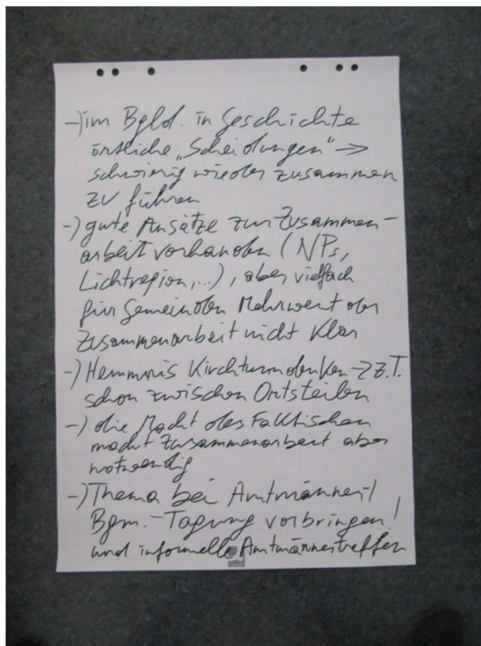 -) im Bgld. in Geschichte
örtliche „Scheidungen" →
schwierig wieder zusammen
zu führen
-) gute Ansätze zur Zusammen-
arbeit vorhanden (NPs,
Lichtregion,...), aber vielfach
für Gemeinden Mehrwert der
Zusammenarbeit nicht klar
-) Hemmnis Kirchturmdenken → z.T.
schon zwischen Ortsteilen
-) die Macht des Faktischen
macht Zusammenarbeit aber
notwendig
-) Thema bei Amtmänner/
Bgm.-Tagung vorbringen!
und informelle Amtmännertreffen